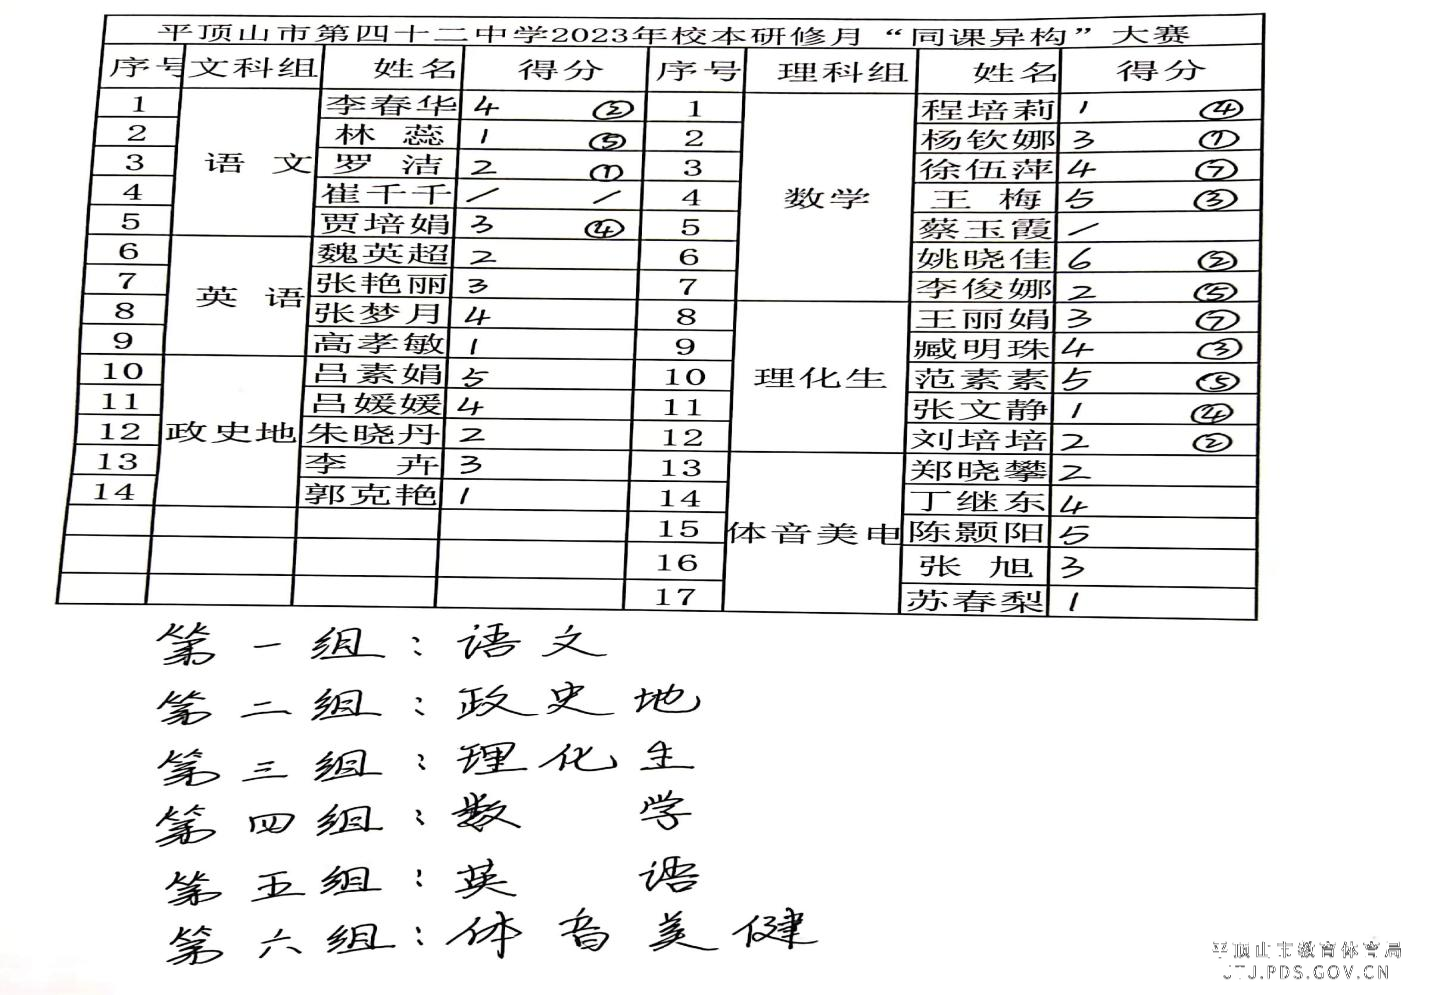 平顶山市第四十二中学2023年校本研修月“同课异构”大赛
序号 文科组 姓名 得分 序号 理科组 姓名 得分
1 语文 李春华 4 ② 1 数学 程培莉 1 ④
2 林蕊 1 ⑤ 2 杨钦娜 3 ①
3 罗洁 2 ① 3 徐伍萍 4 ⑦
4 崔千千 / / 4 王梅 5 ③
5 贾培娟 3 ④ 5 蔡玉霞 /
6 英语 魏英超 2 6 姚晓佳 6 ②
7 张艳丽 3 7 李俊娜 2 ⑤
8 张梦月 4 8 理化生 王丽娟 3 ⑦
9 高孝敏 1 9 臧明珠 4 ③
10 政史地 吕素娟 5 10 范素素 5 ⑤
11 吕媛媛 4 11 张文静 1 ④
12 朱晓丹 2 12 刘培培 2 ②
13 李卉 3 13 体音美电 郑晓攀 2
14 郭克艳 1 14 丁继东 4
15 陈颢阳 5
16 张旭 3
17 苏春梨 1
第一组：语文
第二组：政史地
第三组：理化生
第四组：数学
第五组：英语
第六组：体音美健
平顶山市教育体育局
JTJ.PDS.GOV.CN